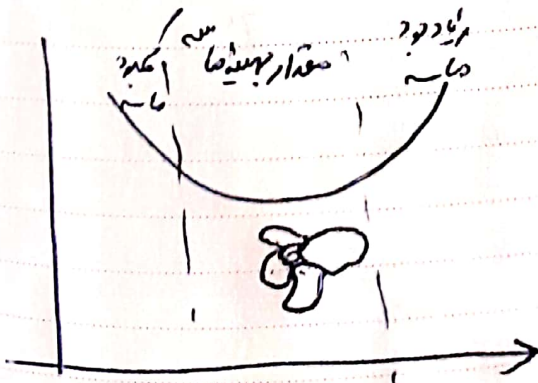 زیاد بود
ماسه
مقدار بهینه ماسه
کمبود
ماسه